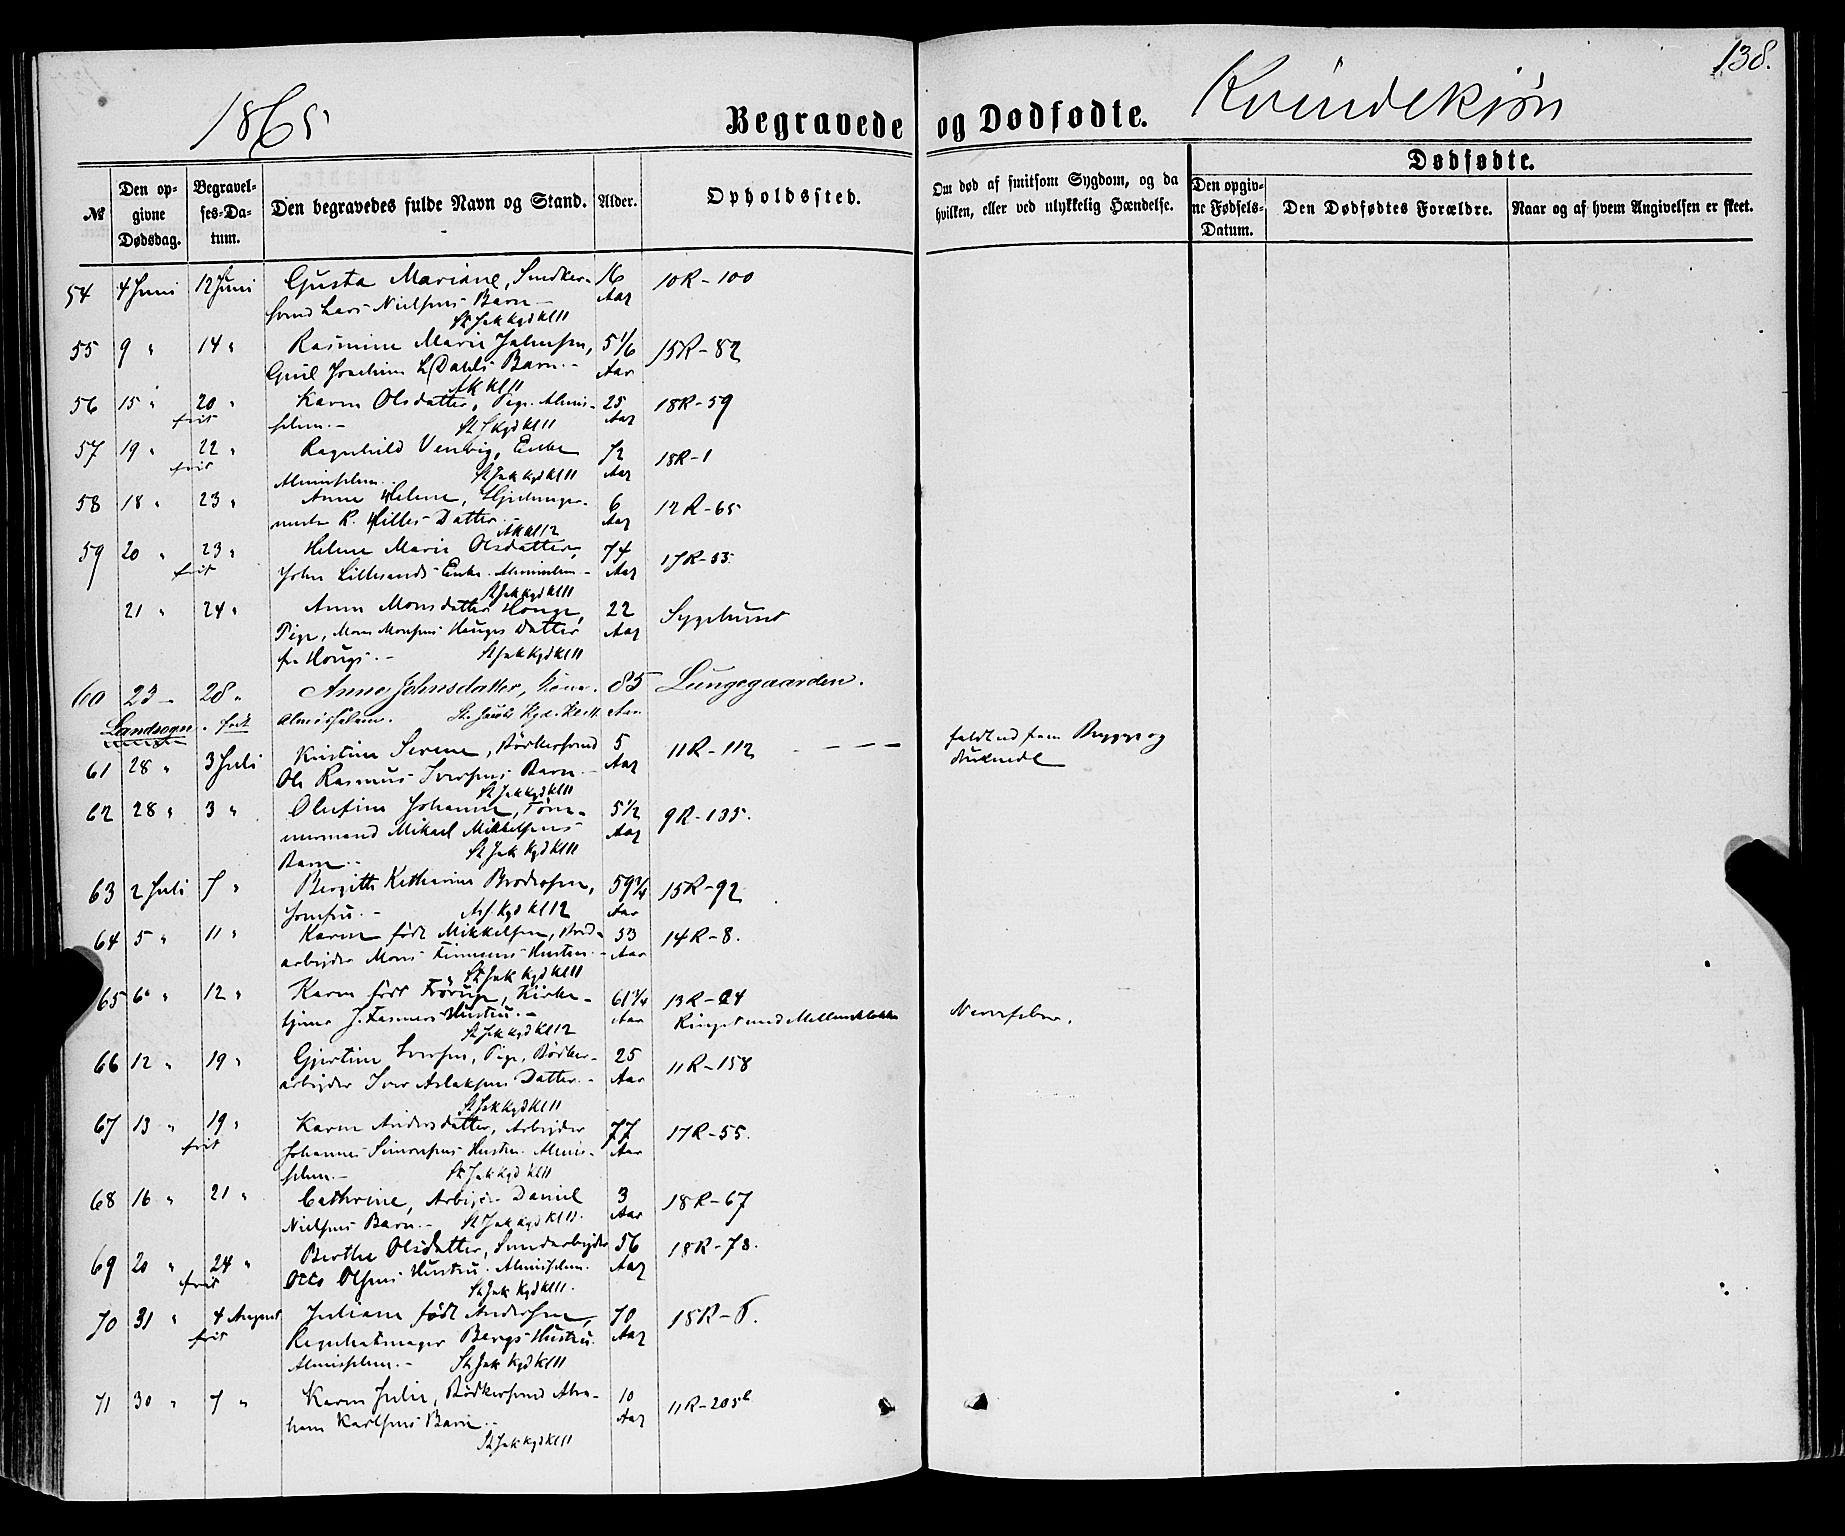 138.
1865
Begravede og Dødfødte.
Kvindekjøn
№
Den opgivne Dødsdag.
Begravelses-Datum.
Den begravedes fulde Navn og Stand.
Alder.
Opholdssted.
Om død af smitsom Sygdom, og da hvilken, eller ved ulykkelig Hændelse.
Dødfødte.
Den opgivne Fødsels-Datum.
Den Dødfødtes Forældre.
Naar og af hvem Angivelsen er skeet.
54 4 Juni 12 Juni Gusta Mariane, Snedker- 16 Aar 10R-100
svend Lars Nielsens Barn
St Jak Kgd Kl 11
55 9 " 14 " Rasmine Marie 5 1/6 Aar 15R-82
Joachim Dahls Barn.
AK Kl 11
56 15 " 20 " Karen Olsdatter, Pige. Almis- 25 Aar 18R-59
frit
St J Kgd Kl 11
57 19 " 22 " Ragnhild Enke 72 Aar 18R-1
frit
St Jak Kgd Kl 11
58 18 " 23 " Anne Helene, 6 Aar 12R-65
Datter.
AK Kl 12
59 20 " 23 " Helene Marie Olsdatter, 74 Aar 17R-55
frit John Lillesands Enke.
St Jak Kgd Kl 11
21 " 24 " Anna Monsdatter Houge, 22 Aar Sygehuset
Pige, Mons Monsens Houges Datter
fra Houge.
St Jak Kgd Kl 11
60 23 - 28 " Anna Johnsdatter, Kone. 85 Aar Lungegaarden.
Landsogn. frit Almislem. St. Jacobs Kgd. Kl 11
61 28 " 3 Juli Kristine Serene, Bødkersvend 5 Aar 11R-112 - - - faldt ud fra Brygge og
Ole Rasmus Iversens Barn druknede
St Jak Kgd Kl 11
62 28 " 3 " Olufine Johanne, Tøm- 5 1/2 Aar 9R-135.
mermand Mikael Mikkelsens
Barn
St Jak Kgd Kl 11
63 2 Juli 7 " Bergitte Katharine Brodersen, 59 3/4 Aar 15R-92
Jomfru.
Ass. Kgd Kl 12
64 5 " 11 " Karen født Mikkelsen, 53 Aar 14R-8.
arbeider Mons Hustru
St Jak Kgd Kl 11
65 6 " 12 " Karen født Frørup, Kirke- 61 3/4 Aar 13R-24 Nervefeber.
tjener J. Fasmers Hustru. Ringet med Mellemklokken
St Jak Kgd Kl 12
66 12 " 19 " Gjertine Iversen, Pige, Bødker- 25 Aar 11R-158
arbeider Iver Aslaksens Datter
St Jak Kgd Kl 11
67 13 " 19 " Karen Andersdatter, Arbeider 77 Aar 17R-55.
frit Johannes Simonsens Hustru. Almis-
selem
St Jak Kgd Kl 11
68 16 " 21 " Cathrine, Arbeider Daniel 3 Aar 18R-67
Nielsens Barn. St Jak Kgd Kl 11.
69 20 " 24 " Berthe Olsdatter, 56 Aar 18R-78.
frit Otto Olsens Hustru. Almisselem.
St Jak Kgd Kl 11.
70 31 " 4 August Juliane født Andersen, 70 Aar 18R-6.
frit Bergs Hustru.
Almisselem. St Jak Kgd Kl 11
71 30 " 7 " Karen Julie, Bødkersvend Abra- 10 Aar 11R-205b
ham Karlsens Barn.
St Jak Kgd Kl 11